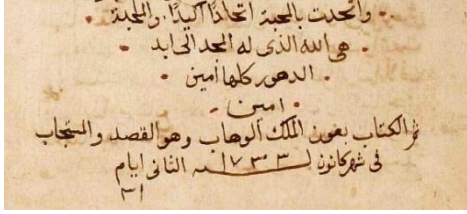 واتحدت بالمحبة اتحادًا اكيدًا. والمحبة
هي الله الذي له المجد الى ابد
الدهور كلها امين
امين
تم الكتاب بعون الملك الوهاب وهو القصد والمنجاب
في شهر كانون الثاني ايام سنة ١٧٣٣
٣١